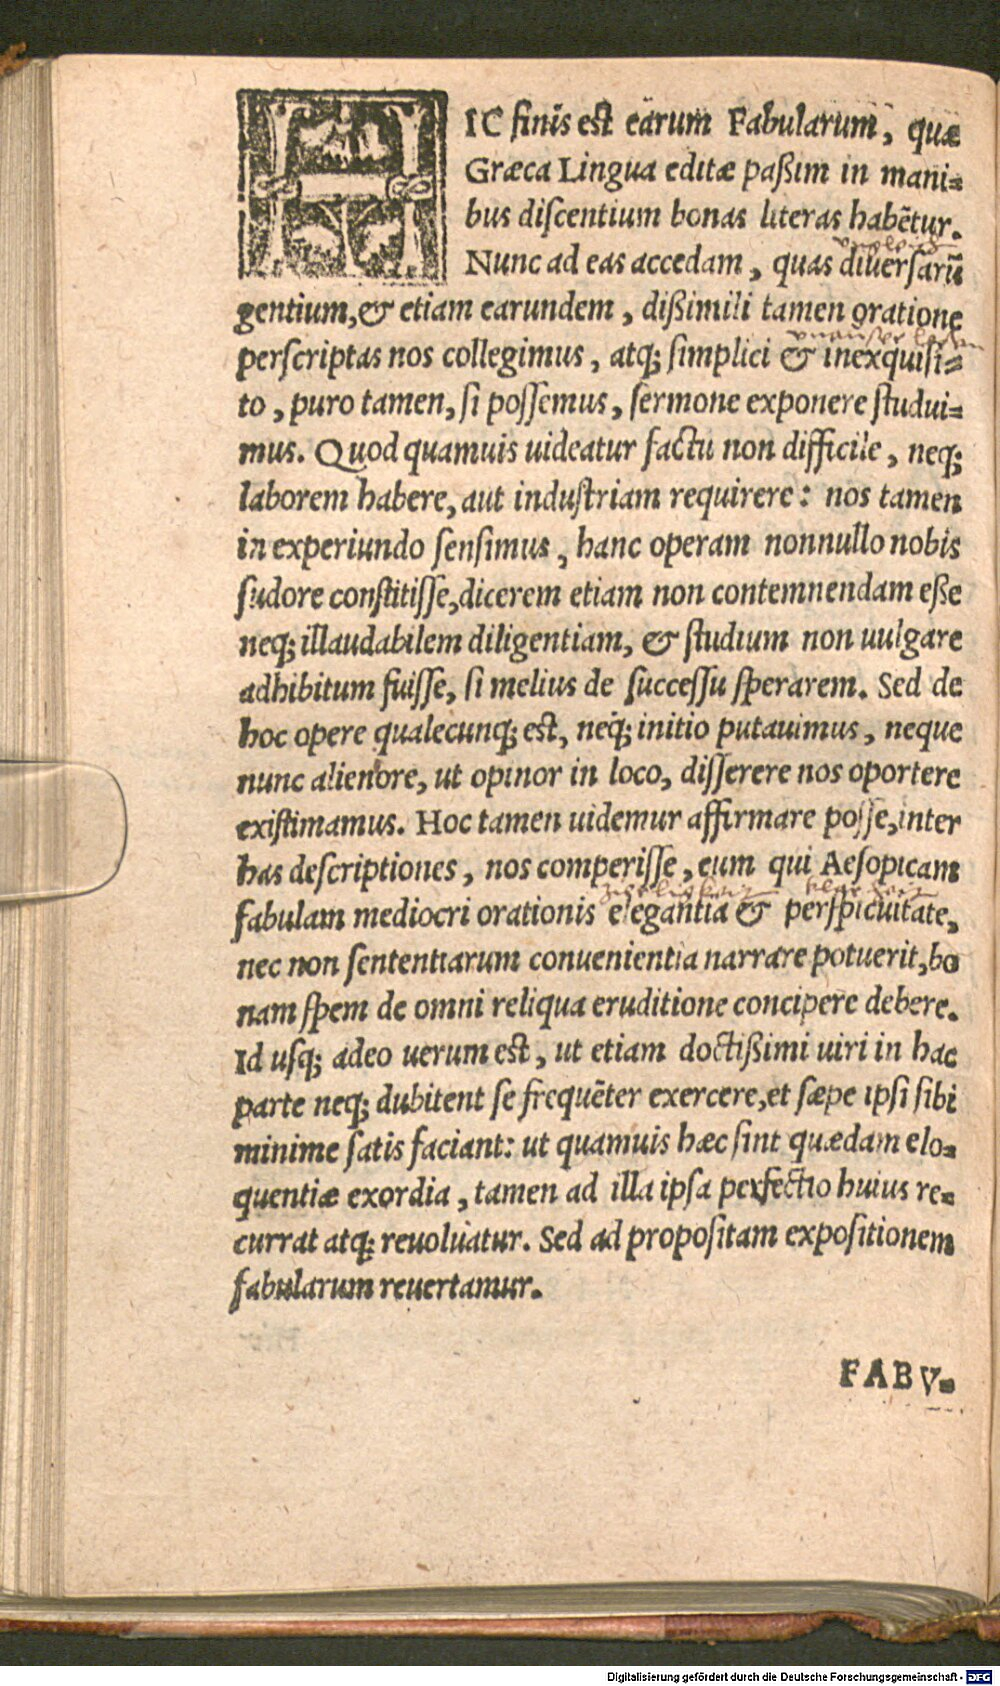 HIC finis est earum Fabularum, quæ
Græca Lingua editæ paßim in mani-
bus discentium bonas literas habētur.
Nunc ad eas accedam, quas diuersarū
gentium, & etiam earundem, dißimili tamen oratione
perscriptas nos collegimus, atq; simplici & inexquisi-
to, puro tamen, si possemus, sermone exponere studui-
mus. Quod quamuis uideatur factu non difficile, neq;
laborem habere, aut industriam requirere: nos tamen
in experiundo sensimus, hanc operam nonnullo nobis
sudore constitisse, dicerem etiam non contemnendam eße
neq; illaudabilem diligentiam, & studium non uulgare
adhibitum fuisse, si melius de successu sperarem. Sed de
hoc opere qualecunq; est, neq; initio putauimus, neque
nunc alienore, ut opinor in loco, disserere nos oportere
existimamus. Hoc tamen uidemur affirmare posse, inter
has descriptiones, nos comperisse, eum qui Aesopicam
zierligkeit
fabulam mediocri orationis elegantia & perspicuitate,
nec non sententiarum conuenientia narrare potuerit, bo
nam spem de omni reliqua eruditione concipere debere.
Id usq; adeo uerum est, ut etiam doctißimi uiri in hac
parte neq; dubitent se frequēter exercere, et sæpe ipsi sibi
minime satis faciant: ut quamuis hæc sint quædam elo-
quentiæ exordia, tamen ad illa ipsa perfectio huius re-
currat atq; reuoluatur. Sed ad propositam expositionem
fabularum reuertamur.
FABV-
Digitalisierung gefördert durch die Deutsche Forschungsgemeinschaft - DFG